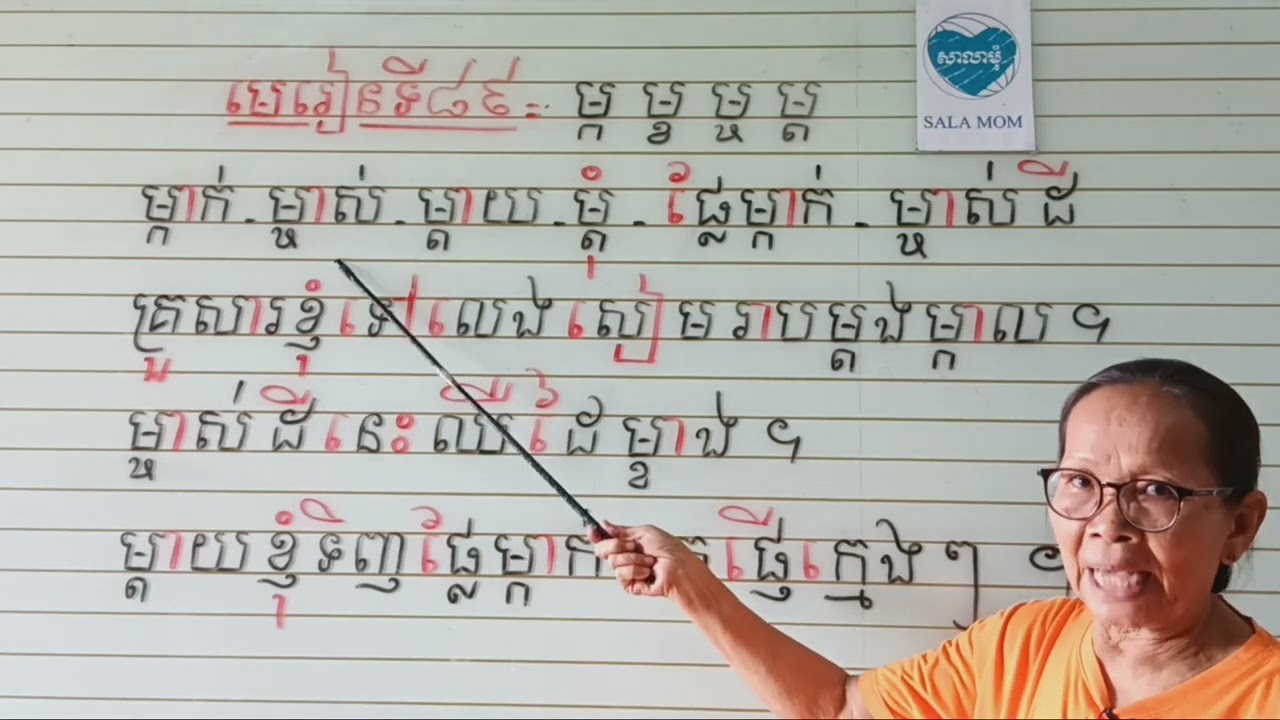 មេរៀនទី៨៩ៈ ម្ក ម្ខ ម្ហ ម្ត
សាលាមុំ
SALA MOM
ម្កាក់ - ម្ហាស់ - ម្តាយ - ម្តុំ - ផ្លែម្កាក់ - ម្ហាស់ដី
គ្រួសារខ្ញុំទៅលេងសៀមរាបម្តងម្កាល ។
ម្ហាស់ដីនេះឈឺដៃម្ខាង ។
ម្តាយខ្ញុំទិញផ្លែម្កាក់ ផ្ញើក្មេងៗ